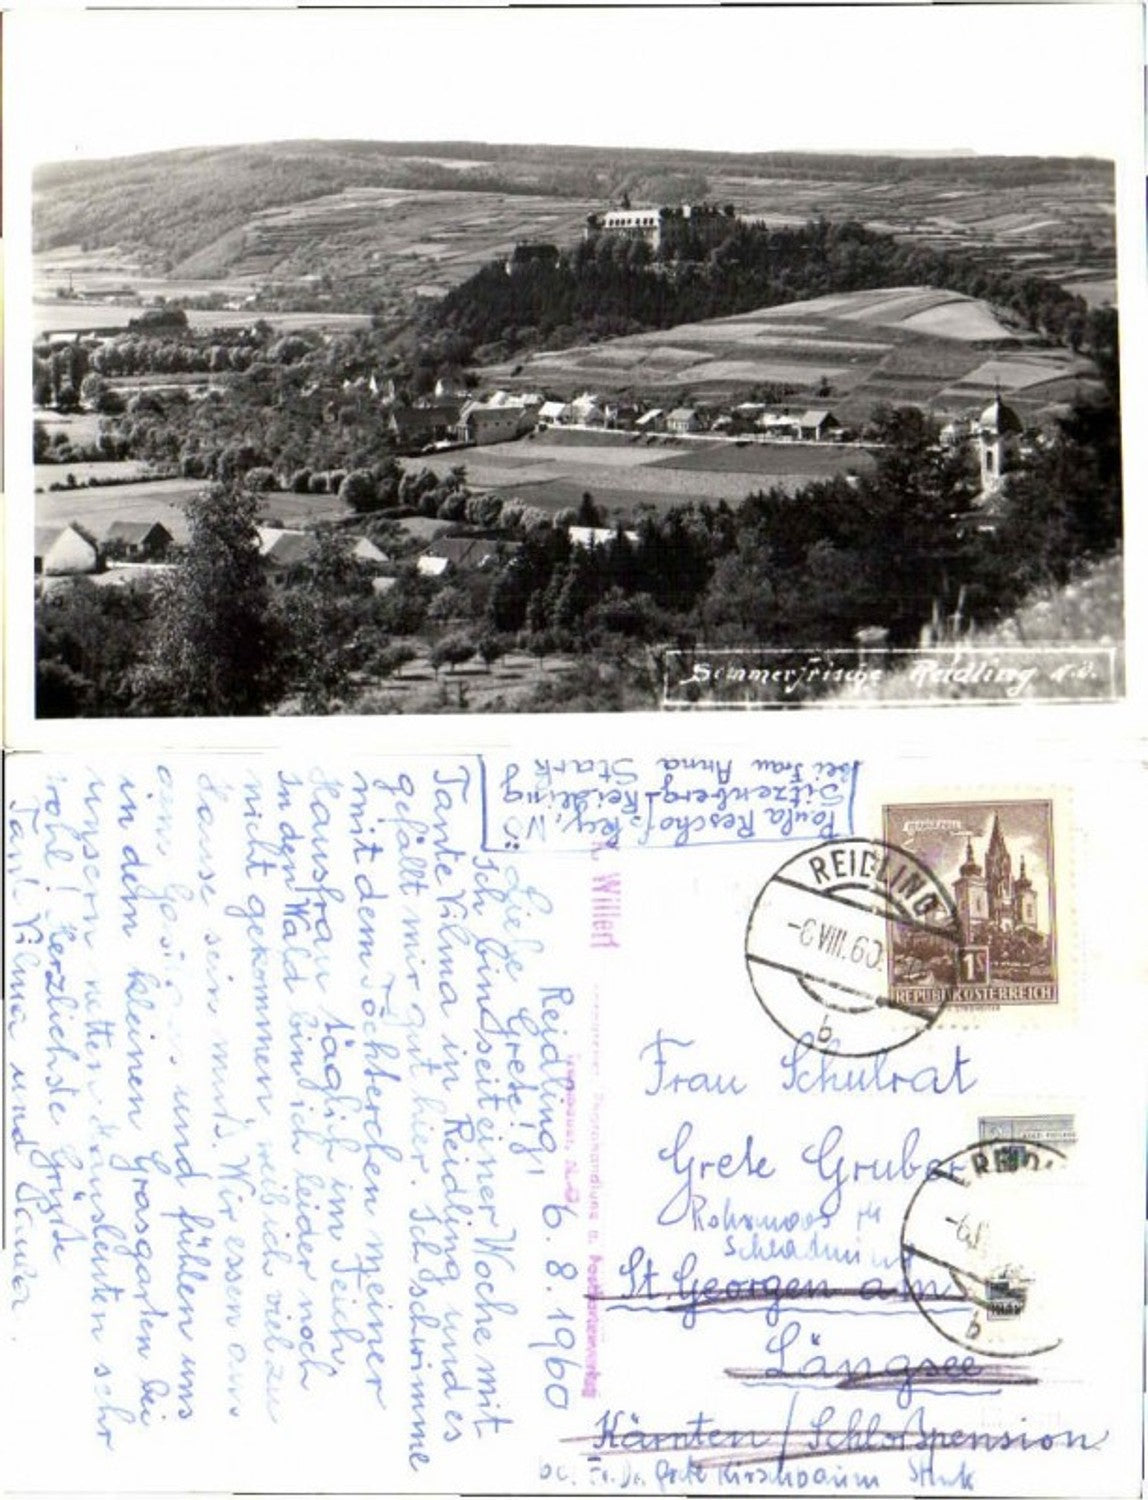 Sommerfrische Reidling N.Ö.
Paula Reschofsky, NÖ
Sitzenberg-Reidling
bei Frau Anna Stark
Reidling, 6. 8. 1960
Liebe Grete!
Ich bin seit einer Woche mit
Tante Vilma in Reidling und es
gefällt mir gut hier. Ich schwimme
mit dem Töchterchen meiner
Hausfrau täglich im Teich,
In den Wald bin ich leider noch
nicht gekommen, weil ich viel zu
Hause sein muß. Wir essen aus
und fühlen uns
in dem kleinen Grasgarten bei
unsern netten Hausleuten sehr
wohl! Herzlichste Grüße
Tante Vilma und Paula.
Willert
REIDLING
VIII.60
b
MARIAZELL
1S
REPUBLIK ÖSTERREICH
Frau Schulrat
Grete Gruber
Rohrmoos
Schladming
St. Georgen am
Längsee
Kärnten / Schloßpension
Grete Kirschbaum
REIDL
b